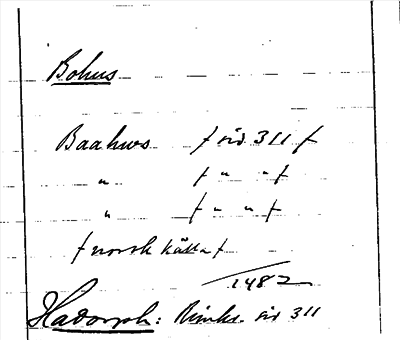 Bohus
Baahuus f sid 311 f
" f " " f
" f " " f
f norsk källa f
1482
Hadorph: Rimkr. sid 311